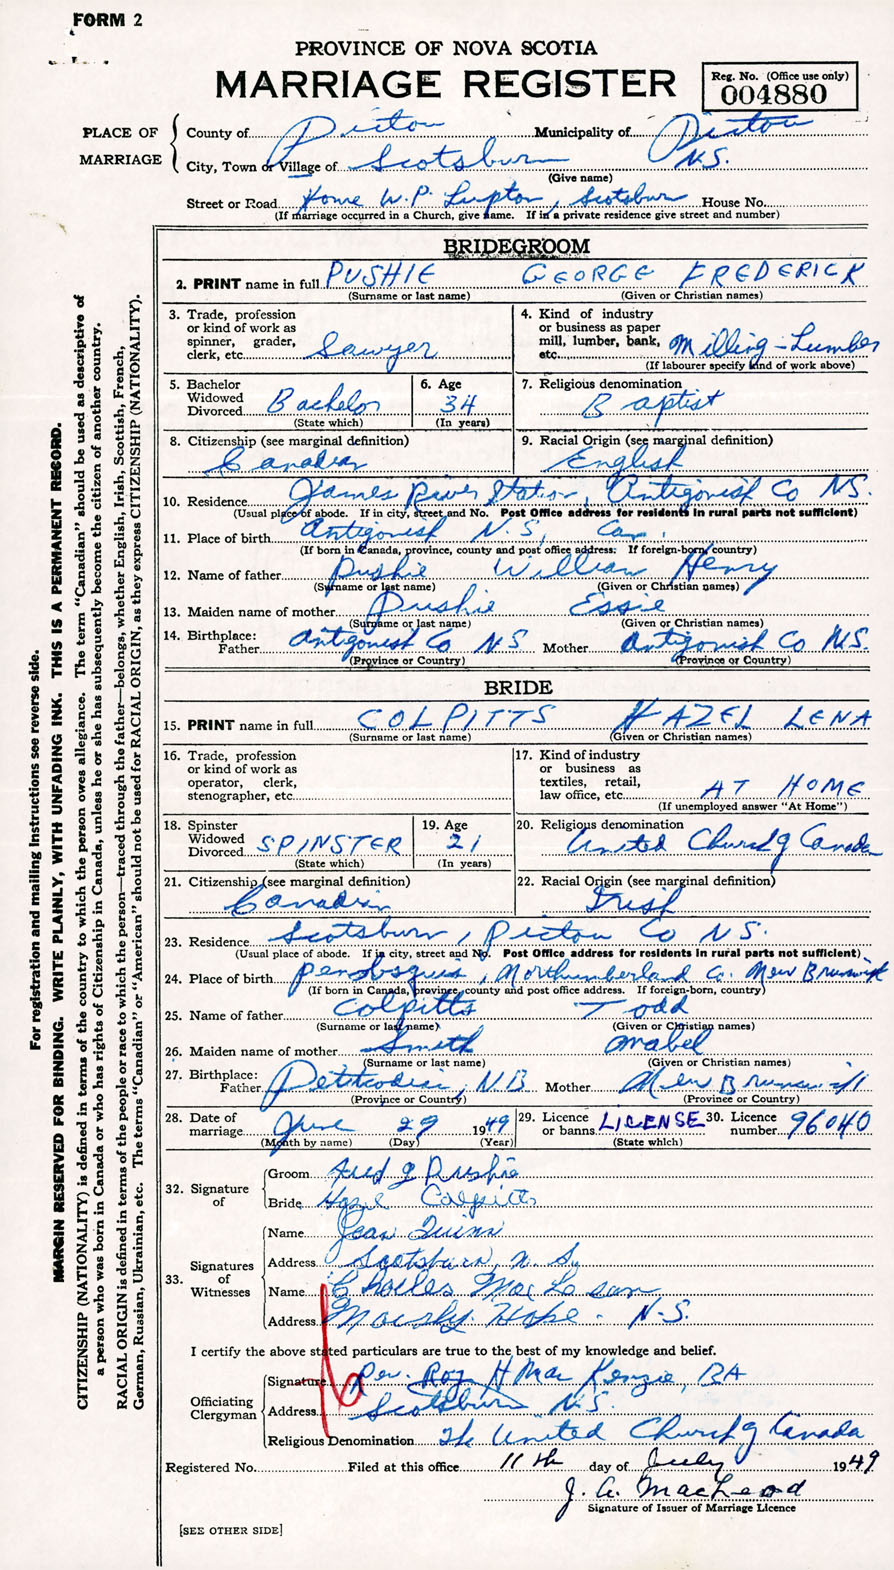 FORM 2
PROVINCE OF NOVA SCOTIA
MARRIAGE REGISTER
Reg. No. (Office use only)
004880
PLACE OF MARRIAGE
County of Pictou Municipality of Pictou
City, Town or Village of Scotsburn N.S.
(Give name)
Street or Road Home W.P. Lupton, Scotsburn House No.
(If marriage occurred in a Church, give name. If in a private residence give street and number)
BRIDEGROOM
2. PRINT name in full PUSHIE GEORGE FREDERICK
(Surname or last name) (Given or Christian names)
3. Trade, profession or kind of work as spinner, grader, clerk, etc. Sawyer
4. Kind of industry or business as paper mill, lumber, bank, etc. Milling - Lumber
(If labourer specify kind of work above)
5. Bachelor Widowed Divorced Bachelor
(State which)
6. Age 34
(In years)
7. Religious denomination
Baptist
8. Citizenship (see marginal definition)
Canadian
9. Racial Origin (see marginal definition)
English
10. Residence James River Station, Antigonish Co NS.
(Usual place of abode. If in city, street and No. Post Office address for residents in rural parts not sufficient)
11. Place of birth Antigonish N.S, Can.
(If born in Canada, province, county and post office address: If foreign-born, country)
12. Name of father Pushie William Henry
(Surname or last name) (Given or Christian names)
13. Maiden name of mother Pushie Essie
(Surname or last name) (Given or Christian names)
14. Birthplace: Father Antigonish Co NS Mother Antigonish Co N.S.
(Province or Country) (Province or Country)
BRIDE
15. PRINT name in full COLPITTS HAZEL LENA
(Surname or last name) (Given or Christian names)
16. Trade, profession or kind of work as operator, clerk, stenographer, etc.
17. Kind of industry or business as textiles, retail, law office, etc. AT HOME
(If unemployed answer "At Home")
18. Spinster Widowed Divorced SPINSTER
(State which)
19. Age 21
(In years)
20. Religious denomination
United Church of Canada
21. Citizenship (see marginal definition)
Canadian
22. Racial Origin (see marginal definition)
Irish
23. Residence Scotsburn, Pictou Co N.S.
(Usual place of abode. If in city, street and No. Post Office address for residents in rural parts not sufficient)
24. Place of birth Penobsquis, Northumberland Co. New Brunswick
(If born in Canada, province, county and post office address. If foreign-born, country)
25. Name of father Colpitts Todd
(Surname or last name) (Given or Christian names)
26. Maiden name of mother Smith Mabel
(Surname or last name) (Given or Christian names)
27. Birthplace: Father Petitcodiac, N.B Mother New Brunswick
(Province or Country) (Province or Country)
28. Date of marriage June 29 1949
(Month by name) (Day) (Year)
29. Licence or banns LICENSE
(State which)
30. Licence number 96040
32. Signature of
Groom Fred G Pushie
Bride Hazel Colpitts
33. Signatures of Witnesses
Name Jean Quinn
Address Scotsburn, N.S.
Name Charles MacLean
Address Hope. N.S.
I certify the above stated particulars are true to the best of my knowledge and belief.
Officiating Clergyman
Signature Rev. Roy H MacKenzie, BA
Address Scotsburn N.S.
Religious Denomination The United Church of Canada
Registered No. Filed at this office 11th day of July 1949
J. A. MacLeod
Signature of Issuer of Marriage Licence
[SEE OTHER SIDE]
For registration and mailing Instructions see reverse side.
MARGIN RESERVED FOR BINDING. WRITE PLAINLY, WITH UNFADING INK. THIS IS A PERMANENT RECORD.
CITIZENSHIP (NATIONALITY) is defined in terms of the country to which the person owes allegiance. The term "Canadian" should be used as descriptive of
a person who was born in Canada or who has rights of Citizenship in Canada, unless he or she has subsequently become the citizen of another country.
RACIAL ORIGIN is defined in terms of the people or race to which the person—traced through the father—belongs, whether English, Irish, Scottish, French,
German, Russian, Ukrainian, etc. The terms "Canadian" or "American" should not be used for RACIAL ORIGIN, as they express CITIZENSHIP (NATIONALITY).